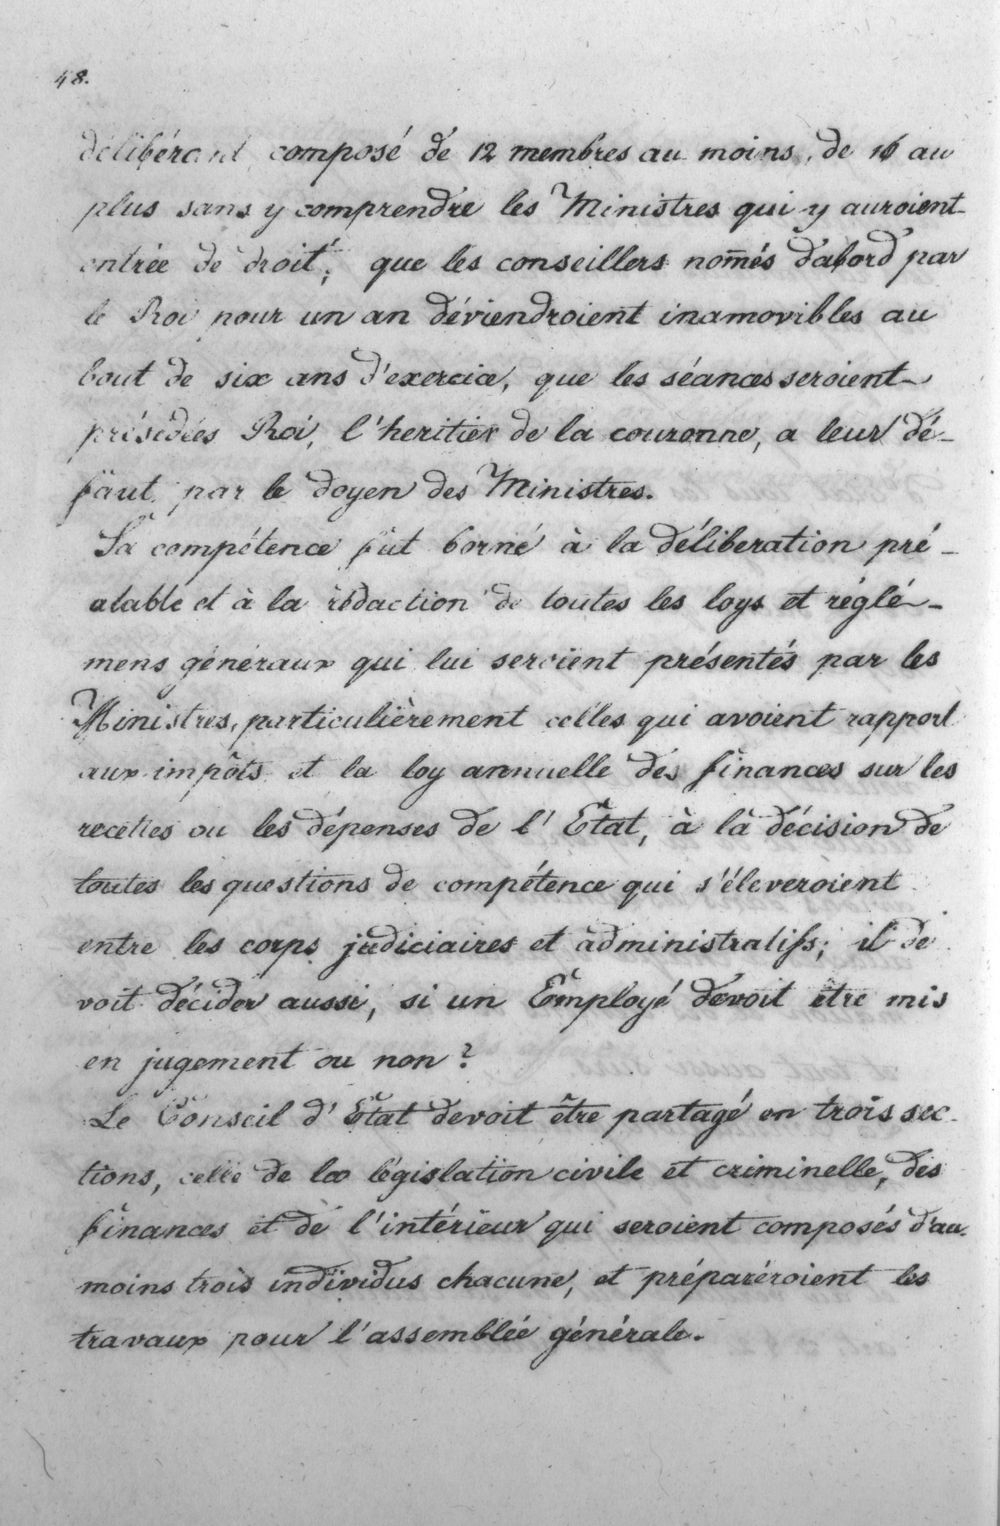 48.
délibérant composé de 12 membres au moins, de 16 au
plus sans y comprendre les Ministres qui y auroient
entrée de droit; que les conseillers nom̄és d'abord par
le Roi pour un an déviendroient inamovibles au
bout de six ans d'exercice, que les séances seroient
présidées Roi, l'heritier de la couronne, a leur dé-
faut par le doyen des Ministres.
Sa compétence fut borné à la déliberation pré-
alable et à la rédaction de toutes les loys et réglé-
mens généraux qui lui seroient présentés par les
Ministres, particulièrement celles qui avoient rapport
aux impôts et la loy annuelle des finances sur les
recettes ou les dépenses de l'État, à la décision de
toutes les questions de compétence qui s'éleveroient
entre les corps judiciaires et administratifs; il de
voit décider aussi, si un Employé devoit être mis
en jugement ou non?
Le Conseil d'État devoit être partagé en trois sec-
tions, celle de la législation civile et criminelle, des
finances et de l'intérieur qui seroient composés d'au-
moins trois individus chacune, et préparéroient les
travaux pour l'assemblée générale.